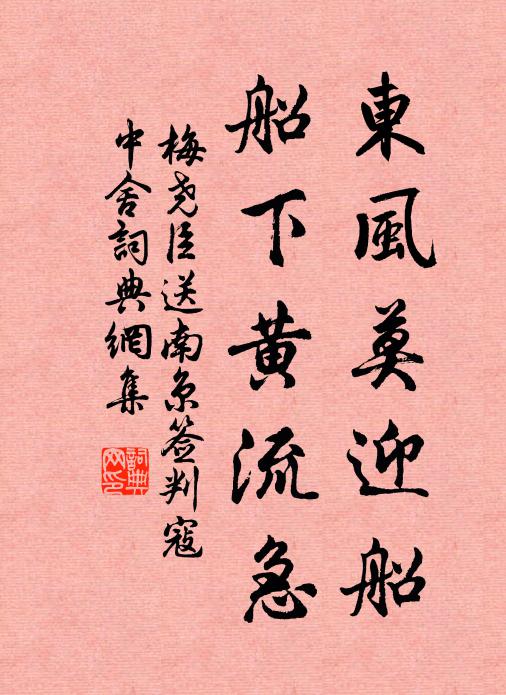 東風莫迎船
船下黄流急
梅尧臣送南京签判寇
中舍詞典網集
詞典網印